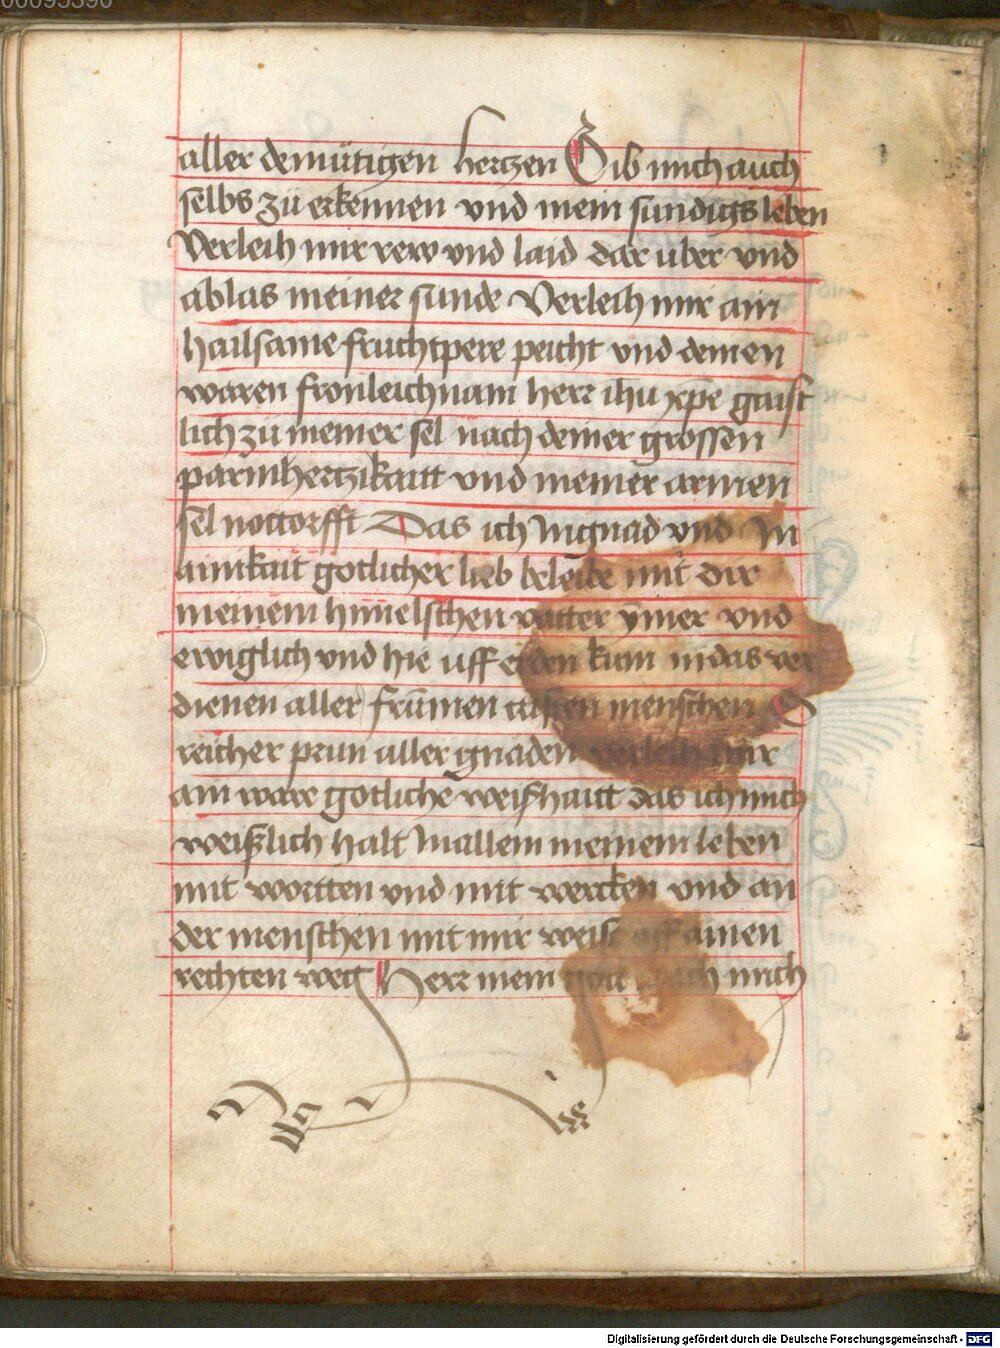 00095390
aller demütigen hertzen Gib mich auch
selbs zü erkennen vnd mein sundigs leben
Verleih mir rew vnd laid dar uber vnd
ablas meiner sunde Verleih mir ain
hailsame fruchtpere peicht vnd deinen
waren fronleichnam herr ihu xp̄e gaist
lich zü meiner sel nach deiner grossen
parmhertzikaitt vnd meiner armen
sel nottorfft Das ich In gnad vnd In
ainikait gotlicher lieb beleibe mit dir
meinem himelschen vatter ymer vnd
ewiglich vnd hie uff erden kum in das ver
dienen aller frümen cristen menschen O
reicher prun aller gnaden verleich mir
ain ware gotliche weißhaitt das ich mich
weißlich halt In allem meinem leben
mit wortten vnd mit wercken vnd an
der menschen mit mir weise uff ainen
rechten weg Herr mein gott mach mich
Digitalisierung gefördert durch die Deutsche Forschungsgemeinschaft - DFG